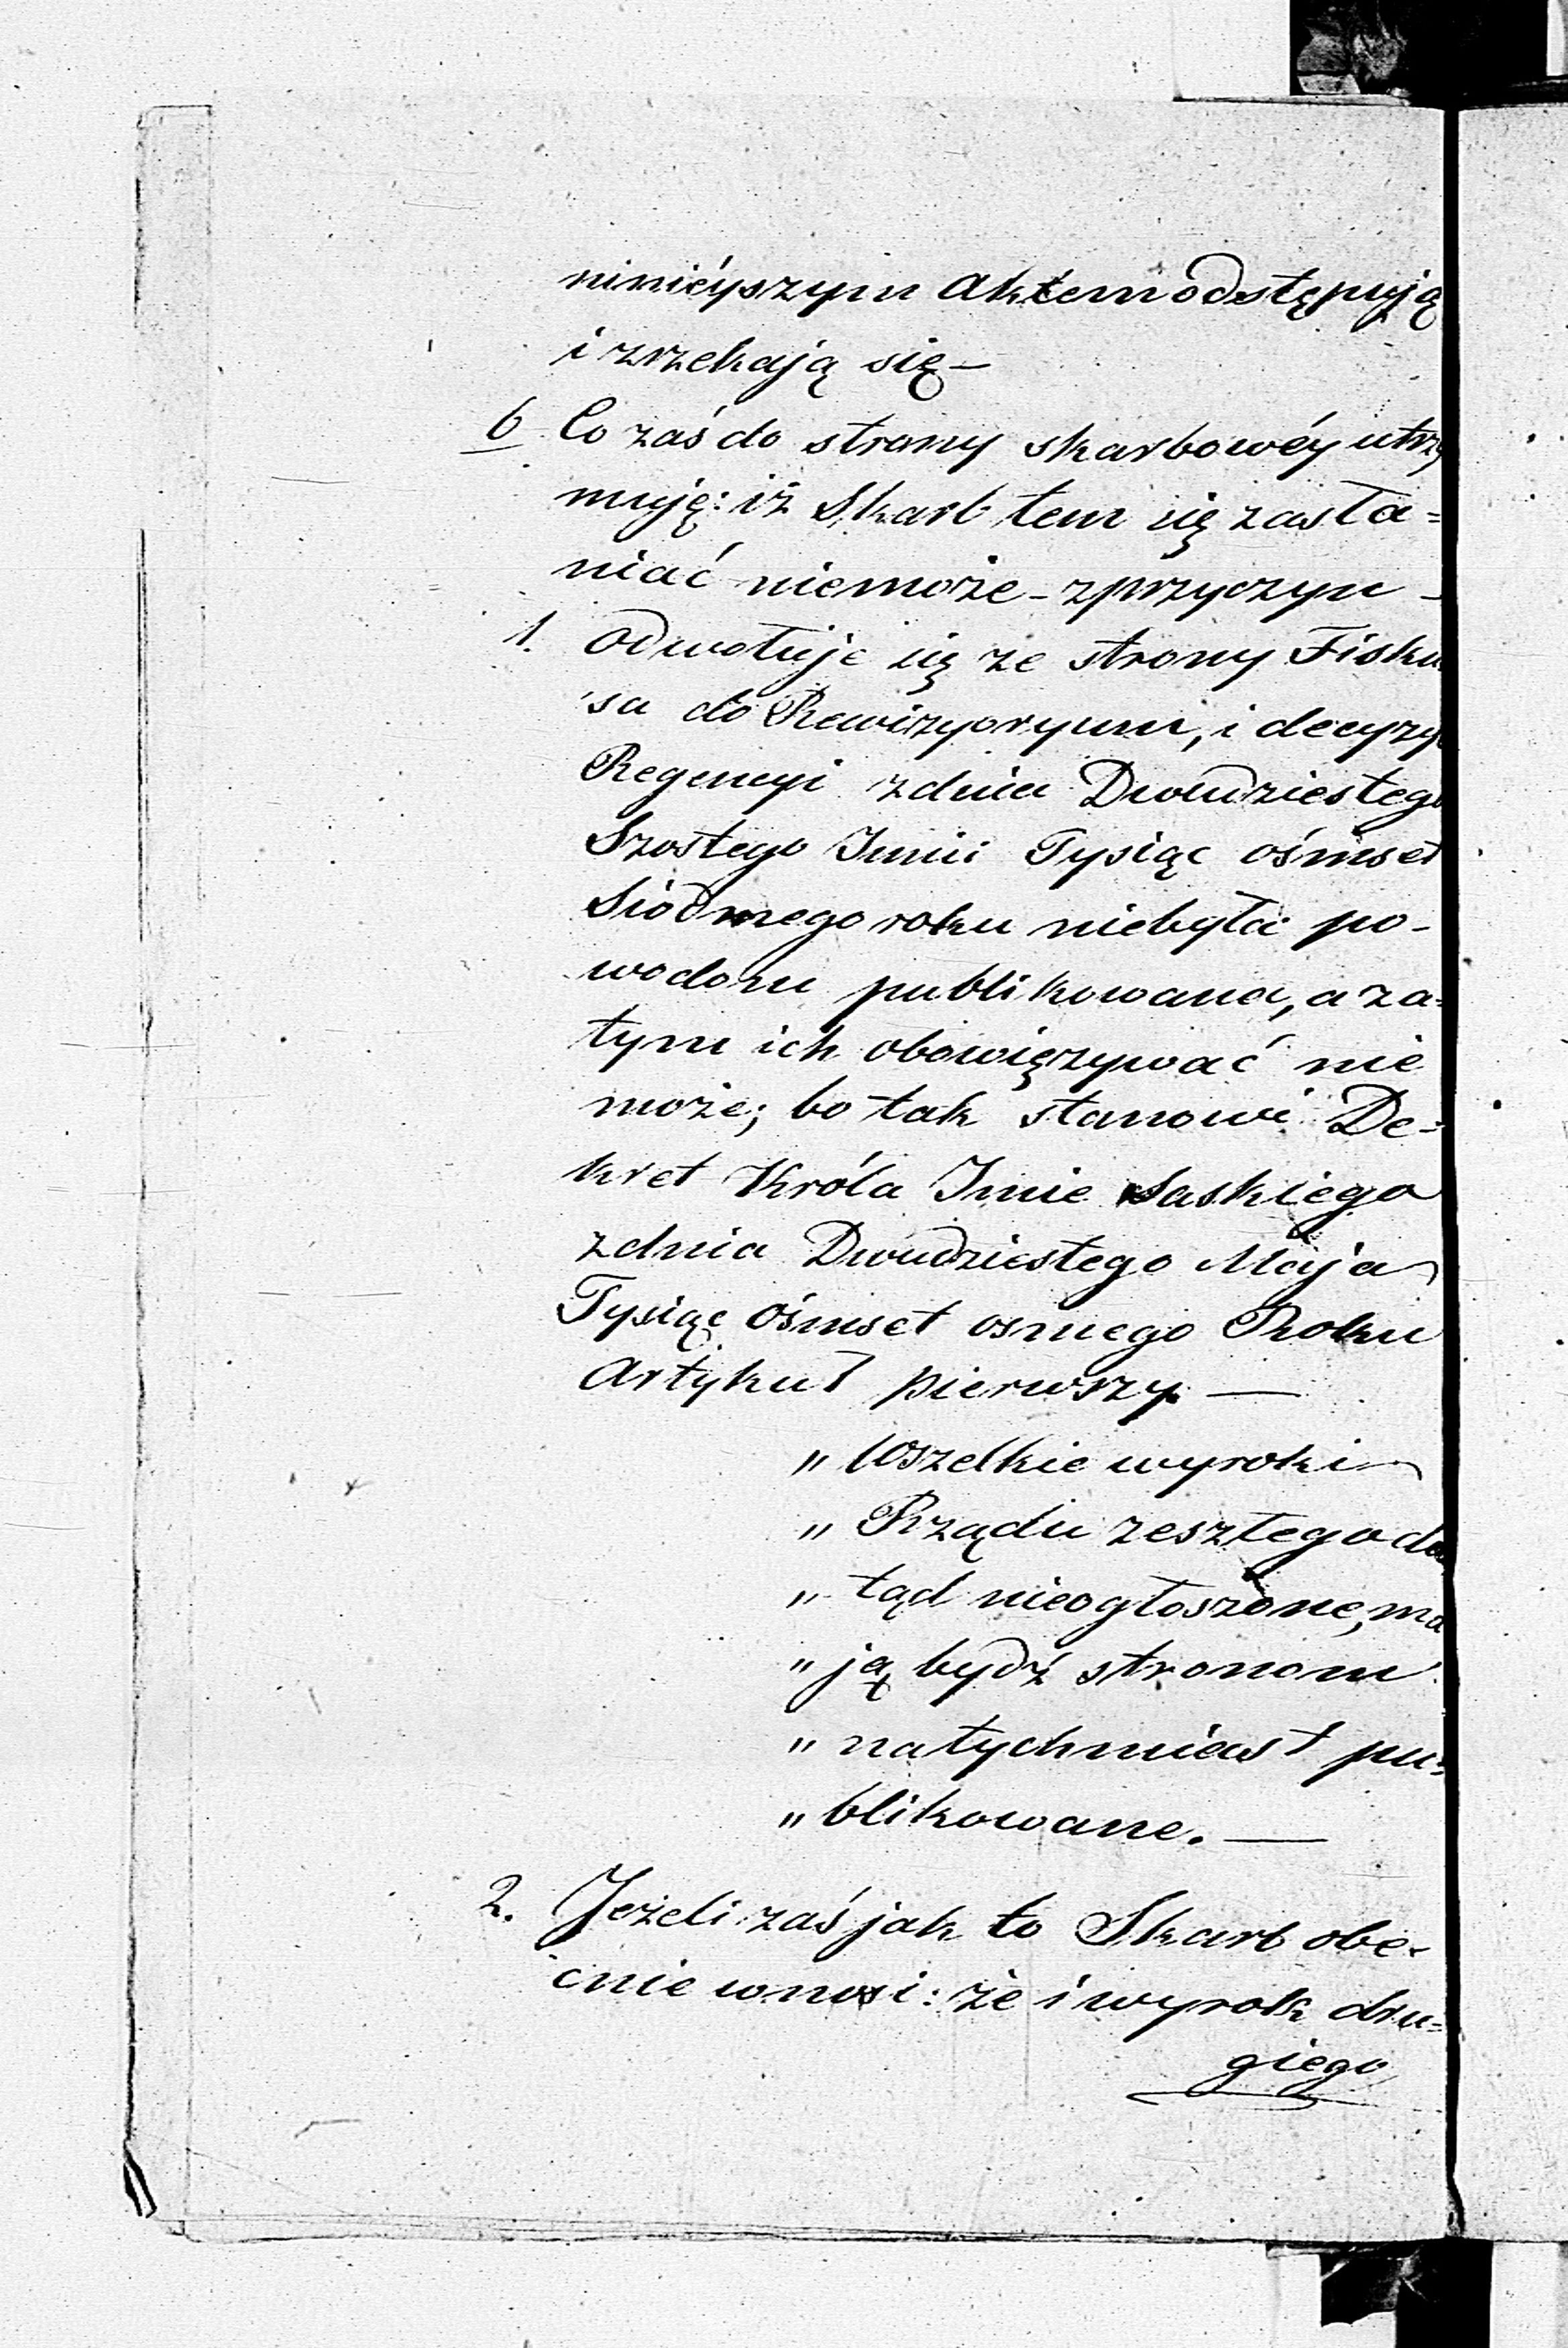 ninieyszym Aktem odstępują
i zrzekają się —
6 Co zaś do strony skarbowéy utrzy
muję: iż Skarb tem się zasła=
niać niemoże - z przyczyn -
1. odwołuje się ze strony Fisku
sa do Rewizyoryum, i decyzy
Regencyi z dnia Dwudziestego
Szostego Junii Tysiąc ośmset
Siódmego roku niebyła po-
wodom publikowana, a za=
tym ich obowięzywać nie
może; bo tak stanowi De=
kret Króla Jmie Saskiego
z dnia Dwudziestego Maja
Tysiąc ośmset osmego Roku
Artykuł pierwszy. —
„ Wszelkie wyroki
„ Rządu zeszłego do
„ tąd nieogłoszone, ma
„ ją bydź stronom
„ natychmiast pu=
„ blikowane. —
2. Jeżeli zaś jak to Skarb obe-
cnie wnosi: że i wyrok dru=
giego